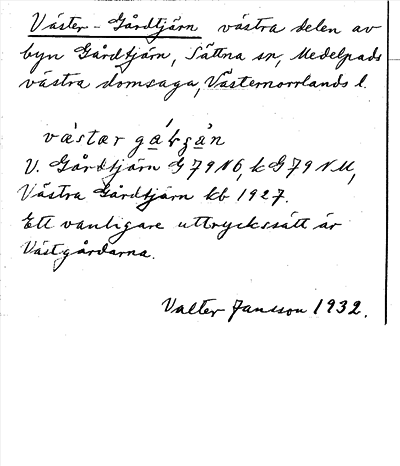 Väster-Gårdtjärn västra delen av
byn Gårdtjärn, Sättna sn, Medelpads
västra domsaga, Västernorrlands l.
V. Gårdtjärn G 79 NÖ, k G 79 NU,
Västra Gårdtjärn kb 1927.
Ett vanligare uttryckssätt är
Västgårdarna.
Valter Jansson 1932.